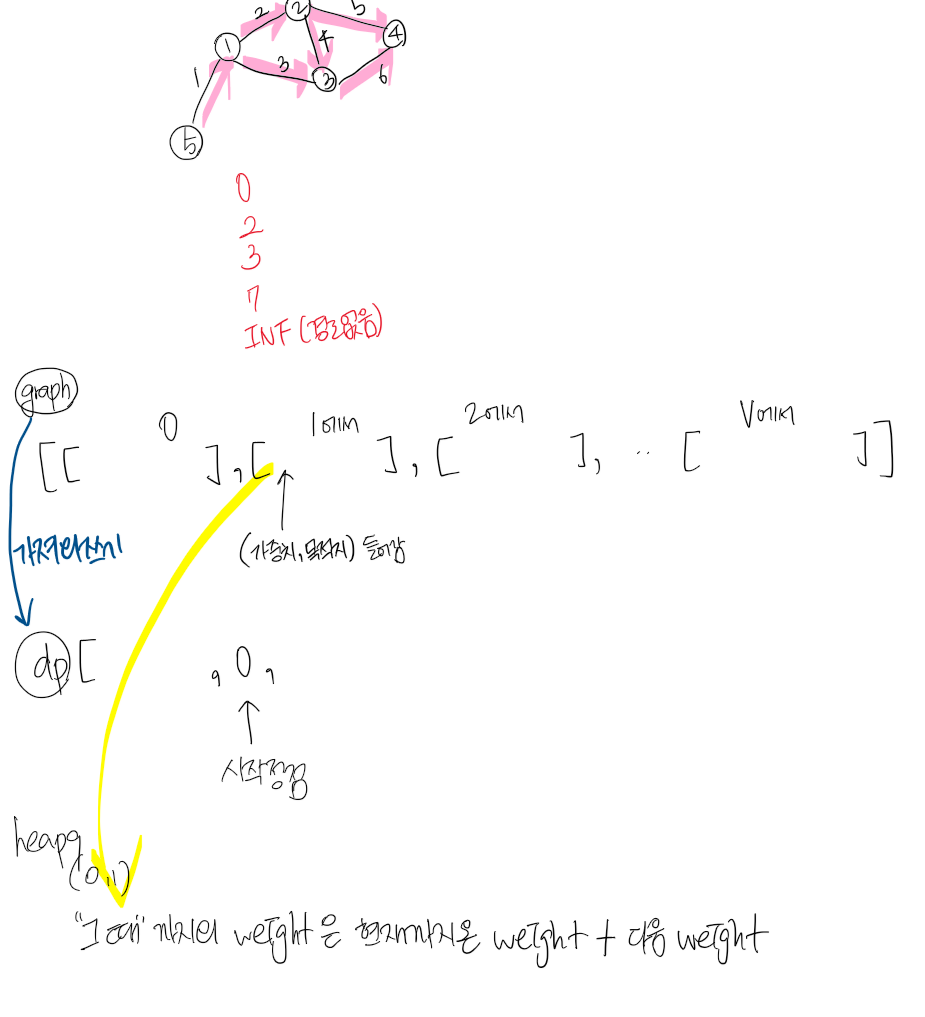 2 2 5
1 4 4
1 3 3 6
5
0
2
3
7
INF (경로없음)
graph
0 1에서 2에서 V에서
[[ ],[ ],[ ], ‥ [ ]]
가져와쓰기 (가중치,목적지) 들어감
dp [ , 0 ,
시작정점
heapq
(0,1)
"그때" 까지의 weight은 현재까지온 weight + 다음 weight